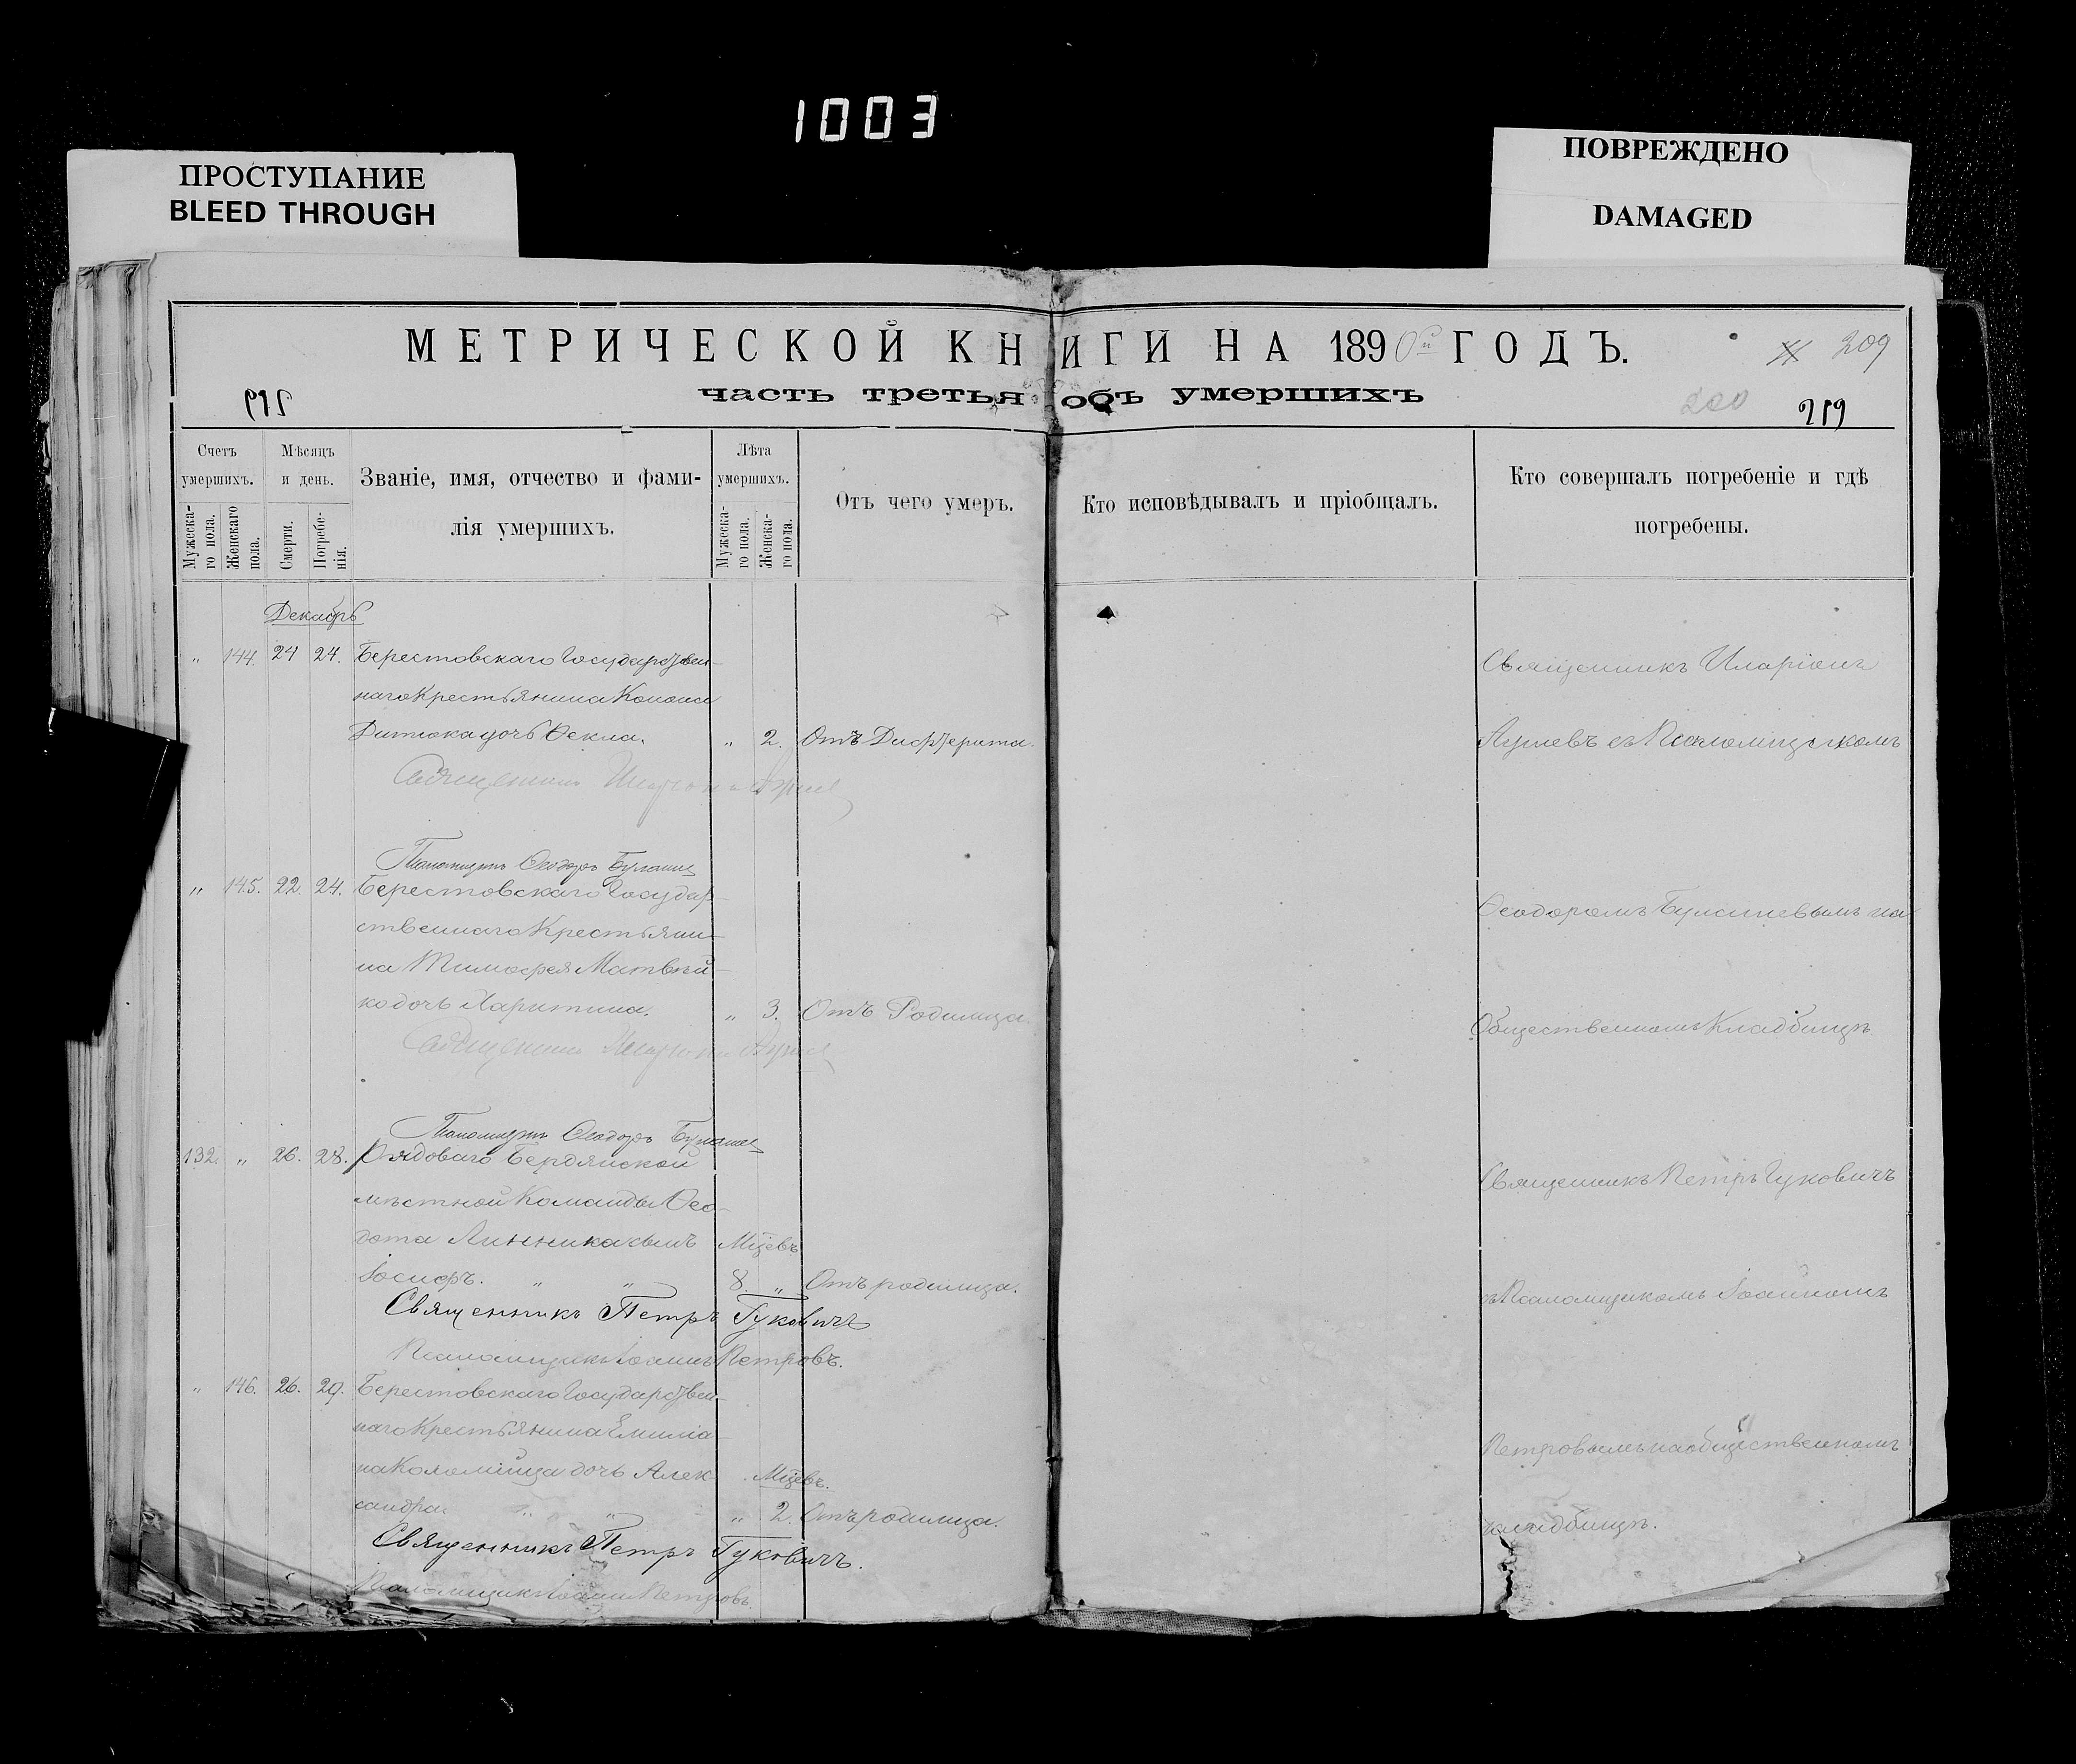 1003
ПРОСТУПАНИЕ
BLEED THROUGH
ПОВРЕЖДЕНО
DAMAGED
МЕТРИЧЕСКОЙ КНИГИ НА 1890й ГОДЪ.
209
часть третья объ умершихъ
200
219
Счетъ умершихъ.
Мужеска-го пола.
Женскаго пола.
Мѣсяцъ и день.
Смерти.
Погребе-нія.
Званіе, имя, отчество и фами-
лія умершихъ.
Лѣта умершихъ.
Мужеска-го пола.
Женска-го пола.
Отъ чего умеръ.
Кто исповѣдывалъ и пріобщалъ.
Кто совершалъ погребеніе и гдѣ
погребены.
Декабрь
" 144. 24 24. Берестовскаго Государствен-
наго Крестьянина Конона
дочь Ѳекла. " 2. Отъ Дифтерита.
Священникъ
Псаломщикъ Ѳеодоръ
" 145. 22. 24. Берестовскаго Государ-
ственнаго Крестьяни-
на Тимоѳея Матвѣй-
ко дочь Харитина. " 3. Отъ Родимца
Священникъ
Псаломщикъ Ѳеодоръ
132. " 26. 28. Рядоваго Бердянской
мѣстной Команды Ѳео-
дота Линника сынъ Мцевъ
Іосифъ. " " 8. " Отъ родимца.
Священникъ Петръ Гуковичъ
Псаломщикъ Іоаннъ Петровъ.
" 146. 26. 29. Берестовскаго Государствен-
наго Крестьянина Емиліа-
на Коломійца дочь Алек- Мцевъ.
сандра " " " 2. Отъ родимца.
Священникъ Петръ Гуковичъ.
Псаломщикъ Іоаннъ Петровъ
Священникъ Иларіонъ
съ Псаломщикомъ
Ѳеодоромъ на
Общественномъ Кладбищѣ
Священникъ Петръ Гуковичъ
съ Псаломщикомъ Іоанномъ
Петровымъ на общественномъ
кладбищѣ.